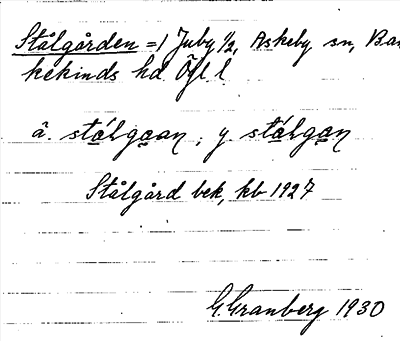 Stålgården = 1 Juby 1/2, Askeby sn, Ban
kekinds hd Ögl l.
ä. stålgaan, y. stålgan
Stålgård bek, kb 1927
G. Granberg 1930